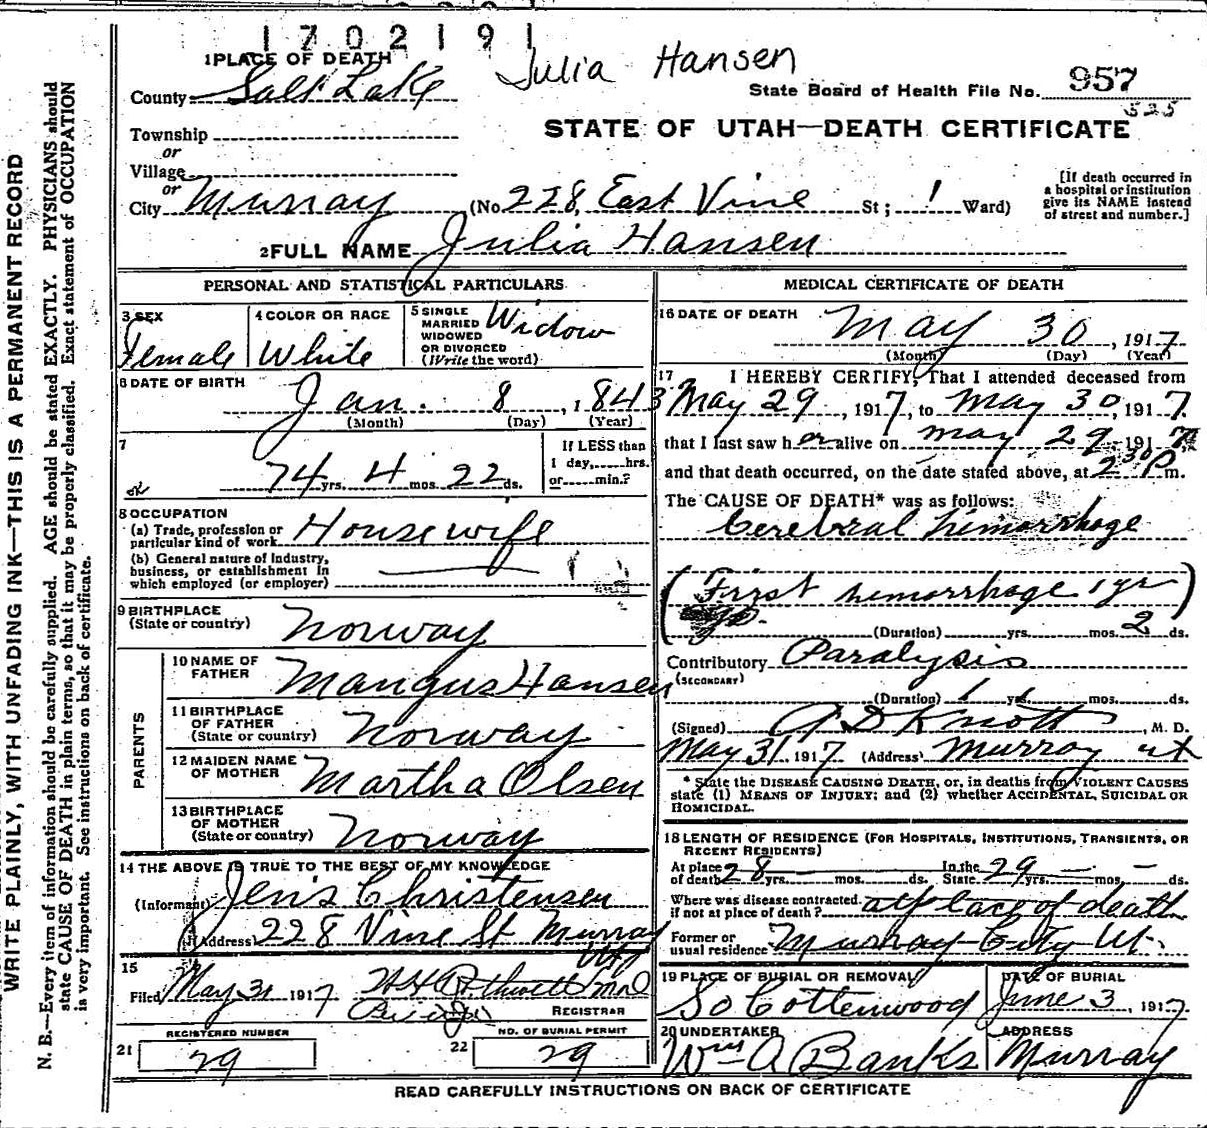 1702191
Julia Hansen
1 PLACE OF DEATH
County Salt Lake
State Board of Health File No. 957
525
STATE OF UTAH—DEATH CERTIFICATE
Township
or
Village
or
City Murray (No 228, East Vine St; 1 Ward)
[If death occurred in
a hospital or institution
give its NAME instead
of street and number.]
2 FULL NAME Julia Hansen
PERSONAL AND STATISTICAL PARTICULARS
3 SEX
Female
4 COLOR OR RACE
White
5 SINGLE
MARRIED
WIDOWED
OR DIVORCED
(Write the word)
Widow
6 DATE OF BIRTH
Jan. 8, 1843
(Month) (Day) (Year)
7
74 yrs. 4 mos. 22 ds.
If LESS than
1 day, hrs.
or min.?
8 OCCUPATION
(a) Trade, profession or
particular kind of work Housewife
(b) General nature of industry,
business, or establishment in
which employed (or employer)
9 BIRTHPLACE
(State or country) Norway
PARENTS
10 NAME OF
FATHER Mangus Hansen
11 BIRTHPLACE
OF FATHER
(State or country) Norway
12 MAIDEN NAME
OF MOTHER Martha Olsen
13 BIRTHPLACE
OF MOTHER
(State or country) Norway
14 THE ABOVE IS TRUE TO THE BEST OF MY KNOWLEDGE
(Informant) Jens Christensen
(Address) 228 Vine St Murray
Utah
15
Filed May 31 1917
REGISTRAR
REGISTERED NUMBER
21 29
NO. OF BURIAL PERMIT
22 29
MEDICAL CERTIFICATE OF DEATH
16 DATE OF DEATH
May 30, 1917
(Month) (Day) (Year)
17 I HEREBY CERTIFY, That I attended deceased from
May 29, 1917, to May 30, 1917.
that I last saw her alive on May 29 1917
and that death occurred, on the date stated above, at 2 30 P m.
The CAUSE OF DEATH* was as follows:
Cerebral hemorrhage
(First hemorrhage 1 yr)
(Duration) yrs. mos. 2 ds.
Contributory Paralysis
(SECONDARY)
(Duration) 1 yrs. mos. ds.
(Signed) A D Knott, M. D.
May 31, 1917 (Address) Murray Ut
* State the DISEASE CAUSING DEATH, or, in deaths from VIOLENT CAUSES
state (1) MEANS OF INJURY; and (2) whether ACCIDENTAL, SUICIDAL OR
HOMICIDAL.
18 LENGTH OF RESIDENCE (FOR HOSPITALS, INSTITUTIONS, TRANSIENTS, OR
RECENT RESIDENTS)
At place
of death 28 yrs. mos. ds. In the
State 29 yrs. mos. ds.
Where was disease contracted
if not at place of death? at place of death
Former or
usual residence Murray City Ut.
19 PLACE OF BURIAL OR REMOVAL
So Cottenwood
DATE OF BURIAL
June 3, 1917
20 UNDERTAKER
Wm A Banks
ADDRESS
Murray
READ CAREFULLY INSTRUCTIONS ON BACK OF CERTIFICATE
WRITE PLAINLY, WITH UNFADING INK—THIS IS A PERMANENT RECORD
N. B.—Every item of information should be carefully supplied. AGE should be stated EXACTLY. PHYSICIANS should
state CAUSE OF DEATH in plain terms, so that it may be properly classified. Exact statement of OCCUPATION
is very important. See instructions on back of certificate.